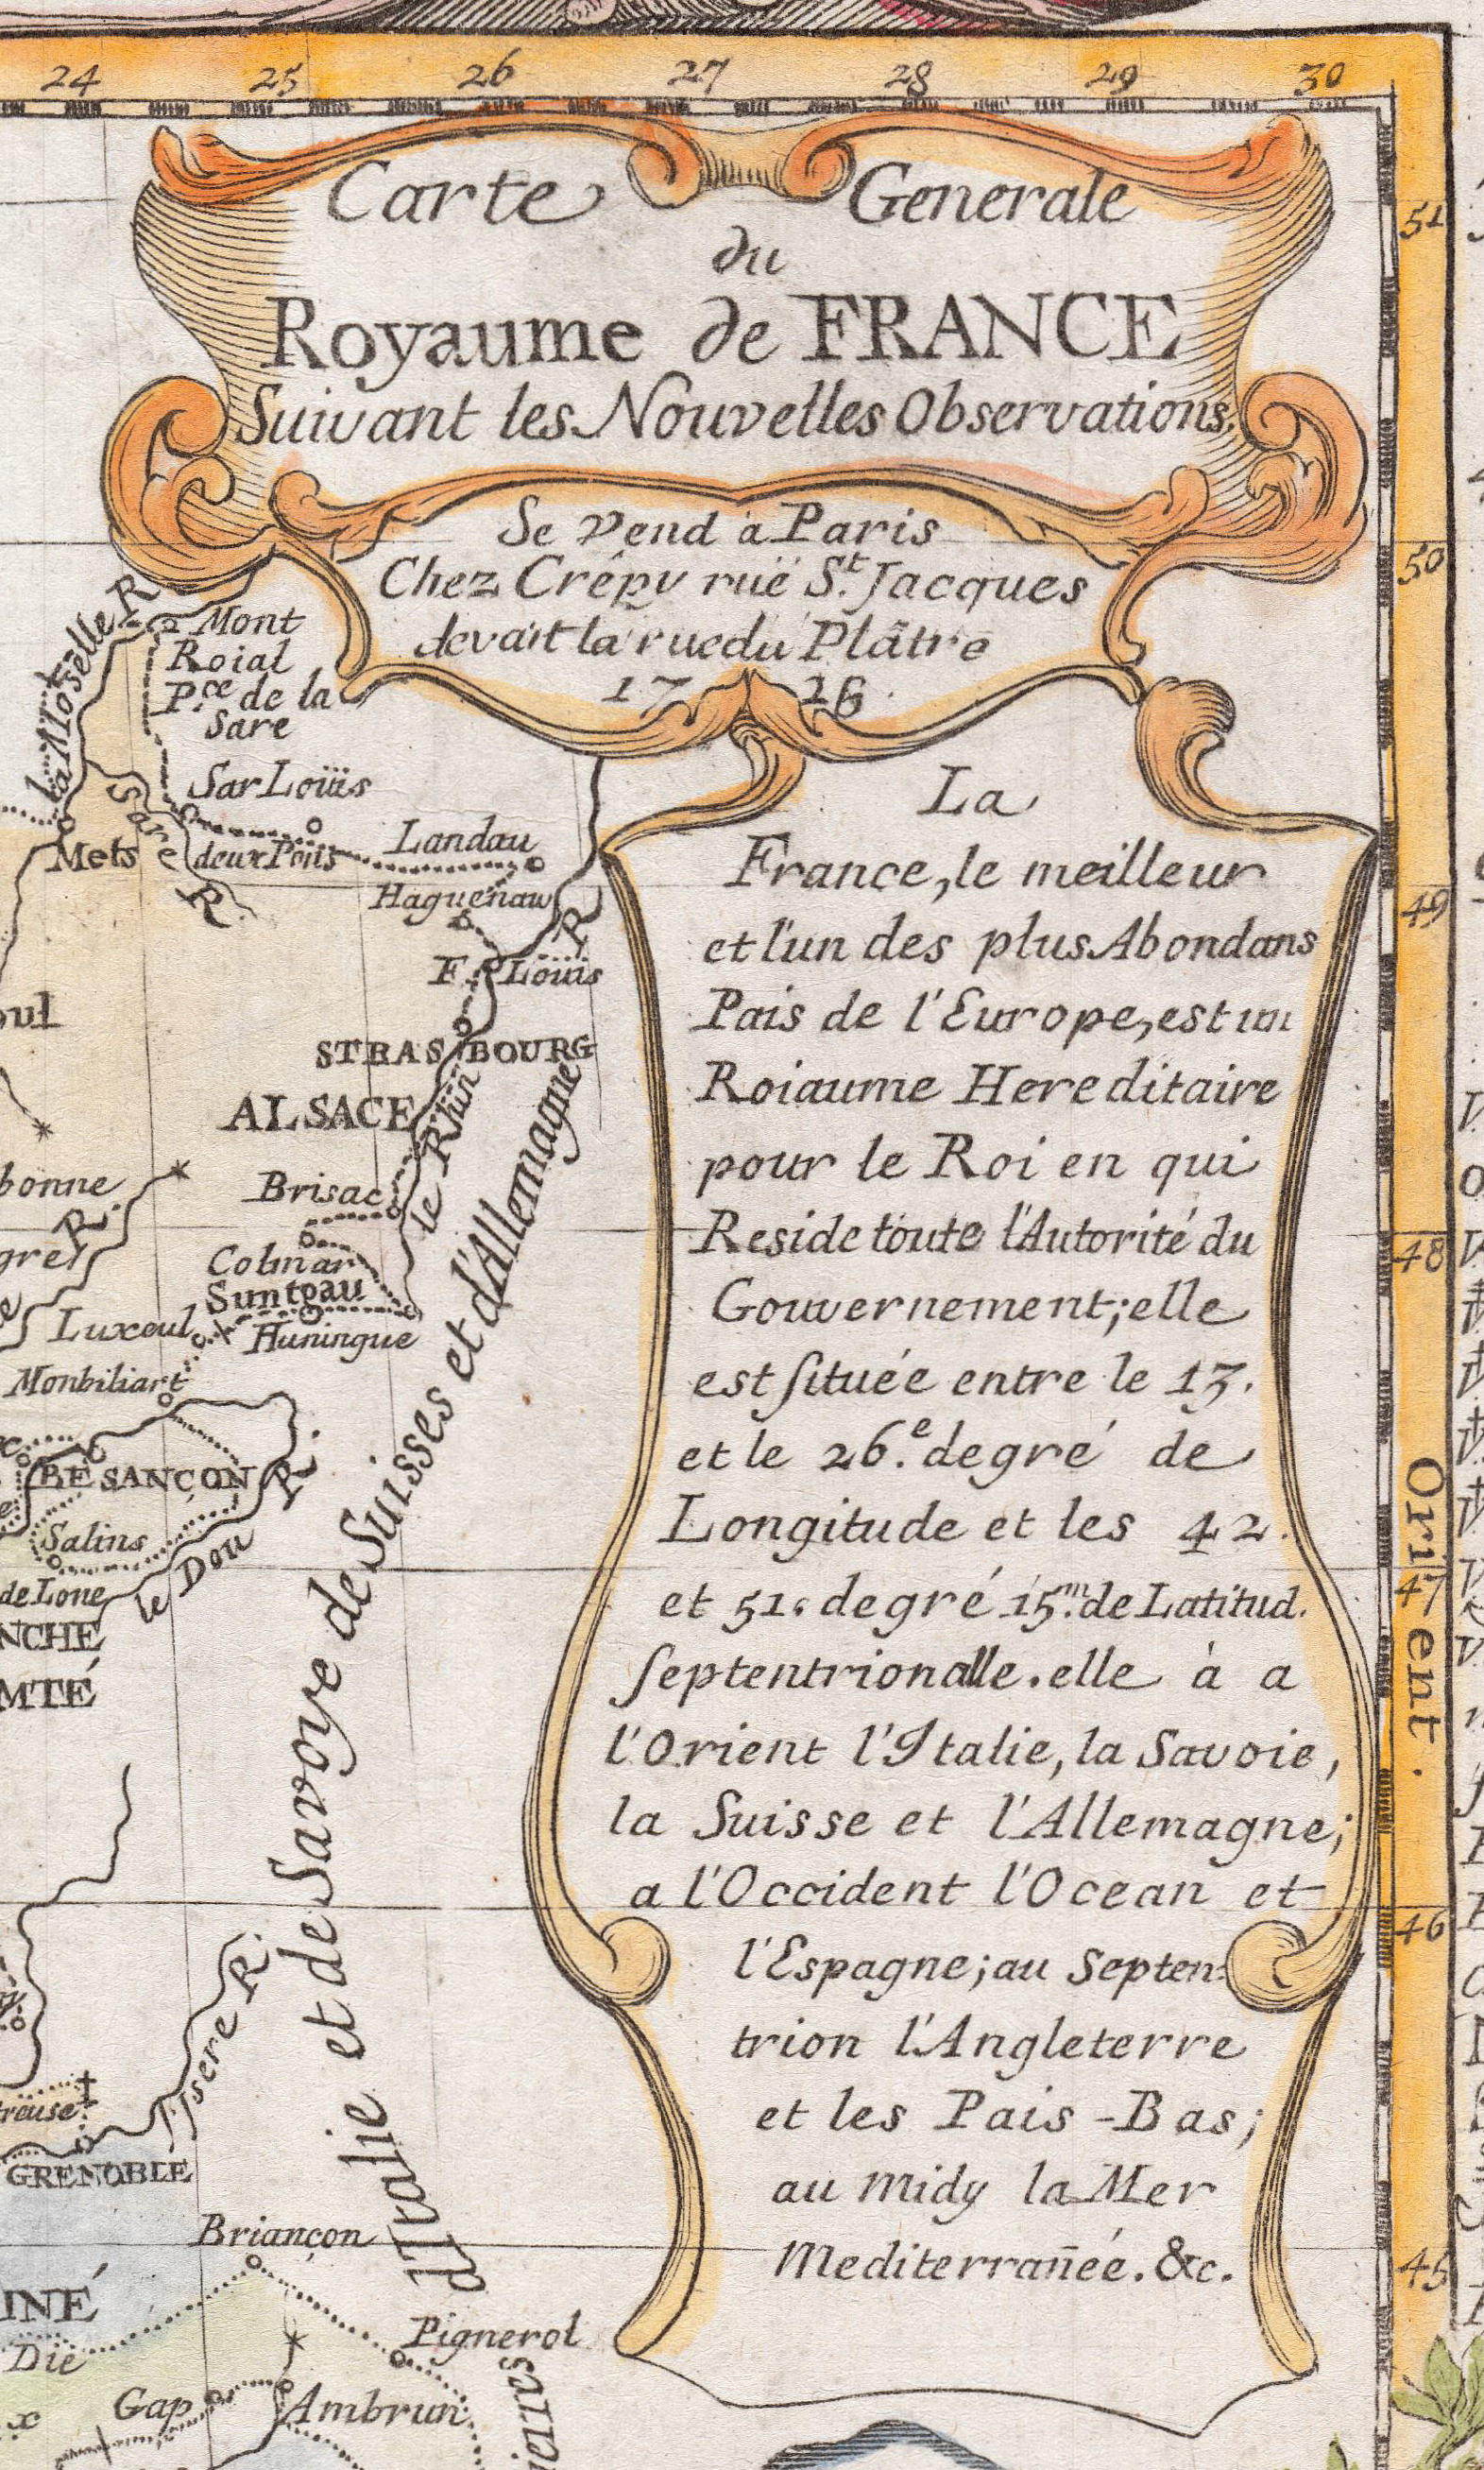 24 25 26 27 28 29 30
Carte Generale
du
Royaume de FRANCE
Suivant les Nouvelles Observations.
Se vend à Paris
Chez Crépy ruë S.t Jacques
devāt la rue du Plâtre
17 26.
La
France, le meilleur
et l'un des plus Abondans
Pais de l'Europe, est un
Roiaume Hereditaire
pour le Roi en qui
Reside toute l'Autorité du
Gouvernement; elle
est située entre le 13.
et le 26.e degré de
Longitude et les 42.
et 51. degré 15.m de Latitud.
septentrionalle. elle à a
l'Orient l'Italie, la Savoie,
la Suisse et l'Allemagne;
a l'Occident l'Ocean et
l'Espagne; au Septen=
trion l'Angleterre
et les Pais-Bas;
au Midy la Mer
Mediterrañeé. &c.
51
50
49
48
47
46
45
Orient.
la Moselle R.
Mont
Roial
P.ce de la
Sare
Sar Loüis
Sare R.
Mets
deux Pons
Landau
Haguenaw
R.
F. Louis
STRASBOURG
ALSACE
le Rhin
Brisac
Colmar
Suntgau
Huningue
Luxeul
Monbiliart
BESANÇON
R.
Salins
le Dou
de Lone
NCHE
MTÉ
bonne
R.
oul
d'Italie et de Savoye de Suisses et d'Allemagne
Isere R.
treuse
GRENOBLE
Briançon
INÉ
Die
Pignerol
Gap
Ambrun